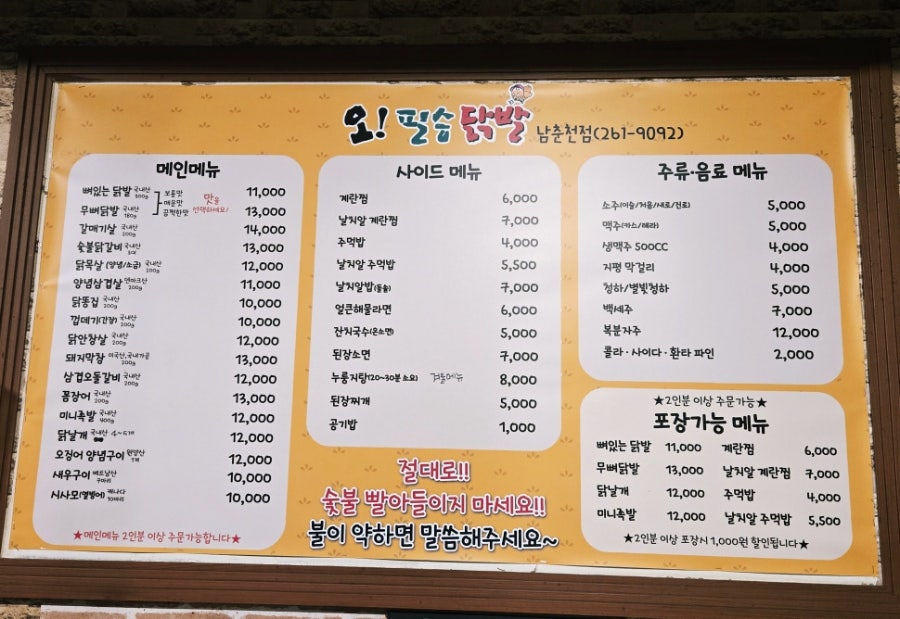 오! 필승 닭발 남춘천점(261-9092)
메인메뉴
뼈있는 닭발 국내산 200g 11,000
무뼈닭발 국내산 180g 13,000
보통맛
매운맛
끔찍한맛
맛을
선택하세요!
갈매기살 국내산 200g 14,000
숯불닭갈비 국내산 13,000
닭목살 (양념/소금) 국내산 200g 12,000
양념삼겹살 덴마크산 200g 11,000
닭똥집 국내산 200g 10,000
껍데기(간장) 국내산 200g 10,000
닭안창살 국내산 200g 12,000
돼지막창 미국산,국내가공 200g 13,000
삼겹오돌갈비 국내산 200g 12,000
꼼장어 국내산 200g 13,000
미니족발 국내산 400g 12,000
닭날개 국내산 4~5개 12,000
오징어 양념구이 원양산 12,000
새우구이 베트남산 10,000
시사모(열빙어) 캐나다 10마리 10,000
★메인메뉴 2인분 이상 주문가능합니다★
사이드 메뉴
계란찜 6,000
날치알 계란찜 7,000
주먹밥 4,000
날치알 주먹밥 5,500
날치알밥(돌솥) 7,000
얼큰해물라면 6,000
잔치국수(온소면) 5,000
된장소면 7,000
누룽지탕(20~30분 소요) 겨울메뉴 8,000
된장찌개 5,000
공기밥 1,000
절대로!!
숯불 빨아들이지 마세요!!
불이 약하면 말씀해주세요~
주류·음료 메뉴
소주(이슬/처음/새로/진로) 5,000
맥주(카스/테라) 5,000
생맥주 500CC 4,000
지평 막걸리 4,000
청하/별빛청하 5,000
백세주 7,000
복분자주 12,000
콜라·사이다·환타 파인 2,000
★2인분 이상 주문가능★
포장가능 메뉴
뼈있는 닭발 11,000 계란찜 6,000
무뼈닭발 13,000 날치알 계란찜 7,000
닭날개 12,000 주먹밥 4,000
미니족발 12,000 날치알 주먹밥 5,500
★2인분 이상 포장시 1,000원 할인됩니다★